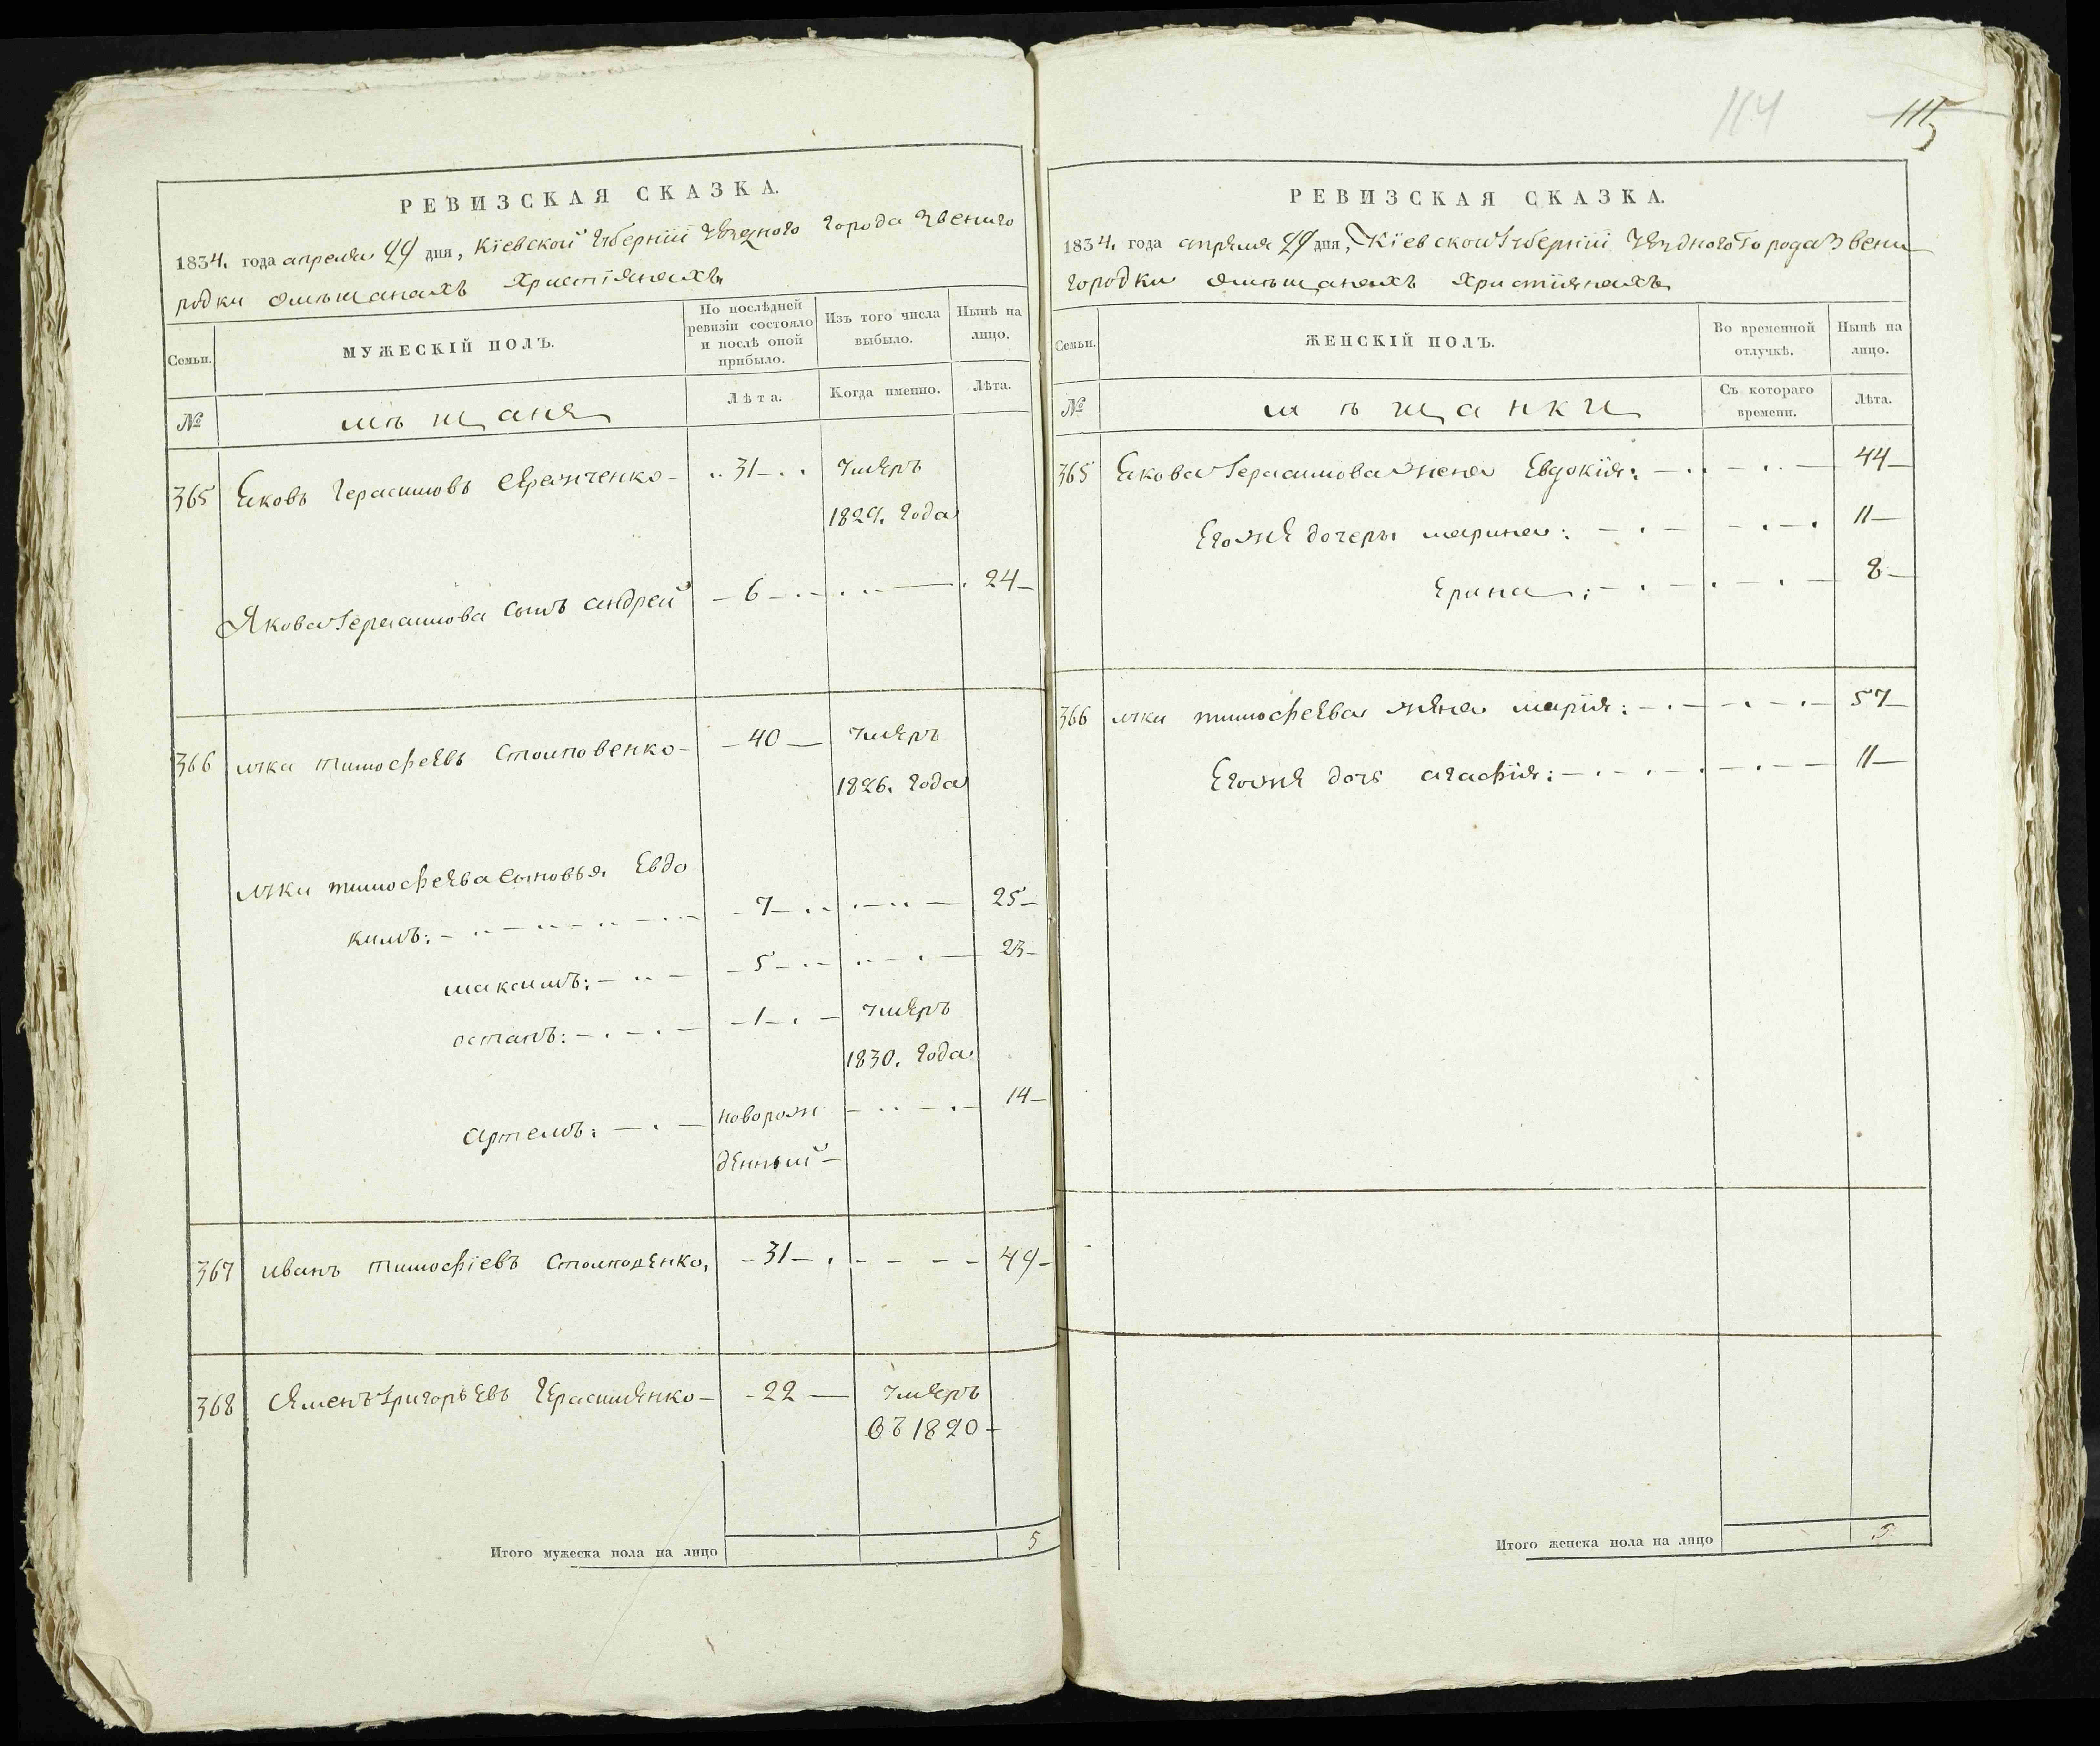 114
115
РЕВИЗСКАЯ СКАЗКА.
1834. года апреля 29 дня, Кіевской Губерніи уѣзднаго города Звениго
родки омѣщанахъ Христіянахъ
Семьи.
МУЖЕСКІЙ ПОЛЪ.
По послѣдней ревизіи состояло и послѣ оной прибыло.
Изъ того числа выбыло.
Нынѣ на лицо.
№
мѣщаня
Лѣта.
Когда именно.
Лѣта.
365 Яковъ Герасимовъ - .. 31 - .. умеръ
1829. года
Якова Герасимова сынъ андрей - 6 - 24 -
366 лука тимофеевъ - - 40 - умеръ
1826. года
луки тимофеева сыновья Евдо
кимъ: - 7 - 25 -
максимъ: - 5 - 23 -
остапъ: - 1 - умеръ
1830. года
артемъ: - новорож 14 -
денный -
367 иванъ тимофіевъ - 31 - 49 -
368 Семенъ Григорьевъ Герасименко - - 22 - умеръ
въ 1820 -
Итого мужеска пола на лицо 5
РЕВИЗСКАЯ СКАЗКА.
1834. года апреля 29 дня, Кіевской Губерніи уѣзднаго Города Звени
городки омѣщанахъ Христіянахъ
Семьи.
ЖЕНСКІЙ ПОЛЪ.
Во временной отлучкѣ.
Нынѣ на лицо.
№
мѣщанки
Съ котораго времени.
Лѣта.
365 Якова Герасимова жена Евдокія: - 44 -
Егожe дочеры марина: - 11 -
Ерина: - 8 -
366 луки тимофеева жена марія: - 57 -
Егоже дочь агафія: - 11 -
Итого женска пола на лицо 5